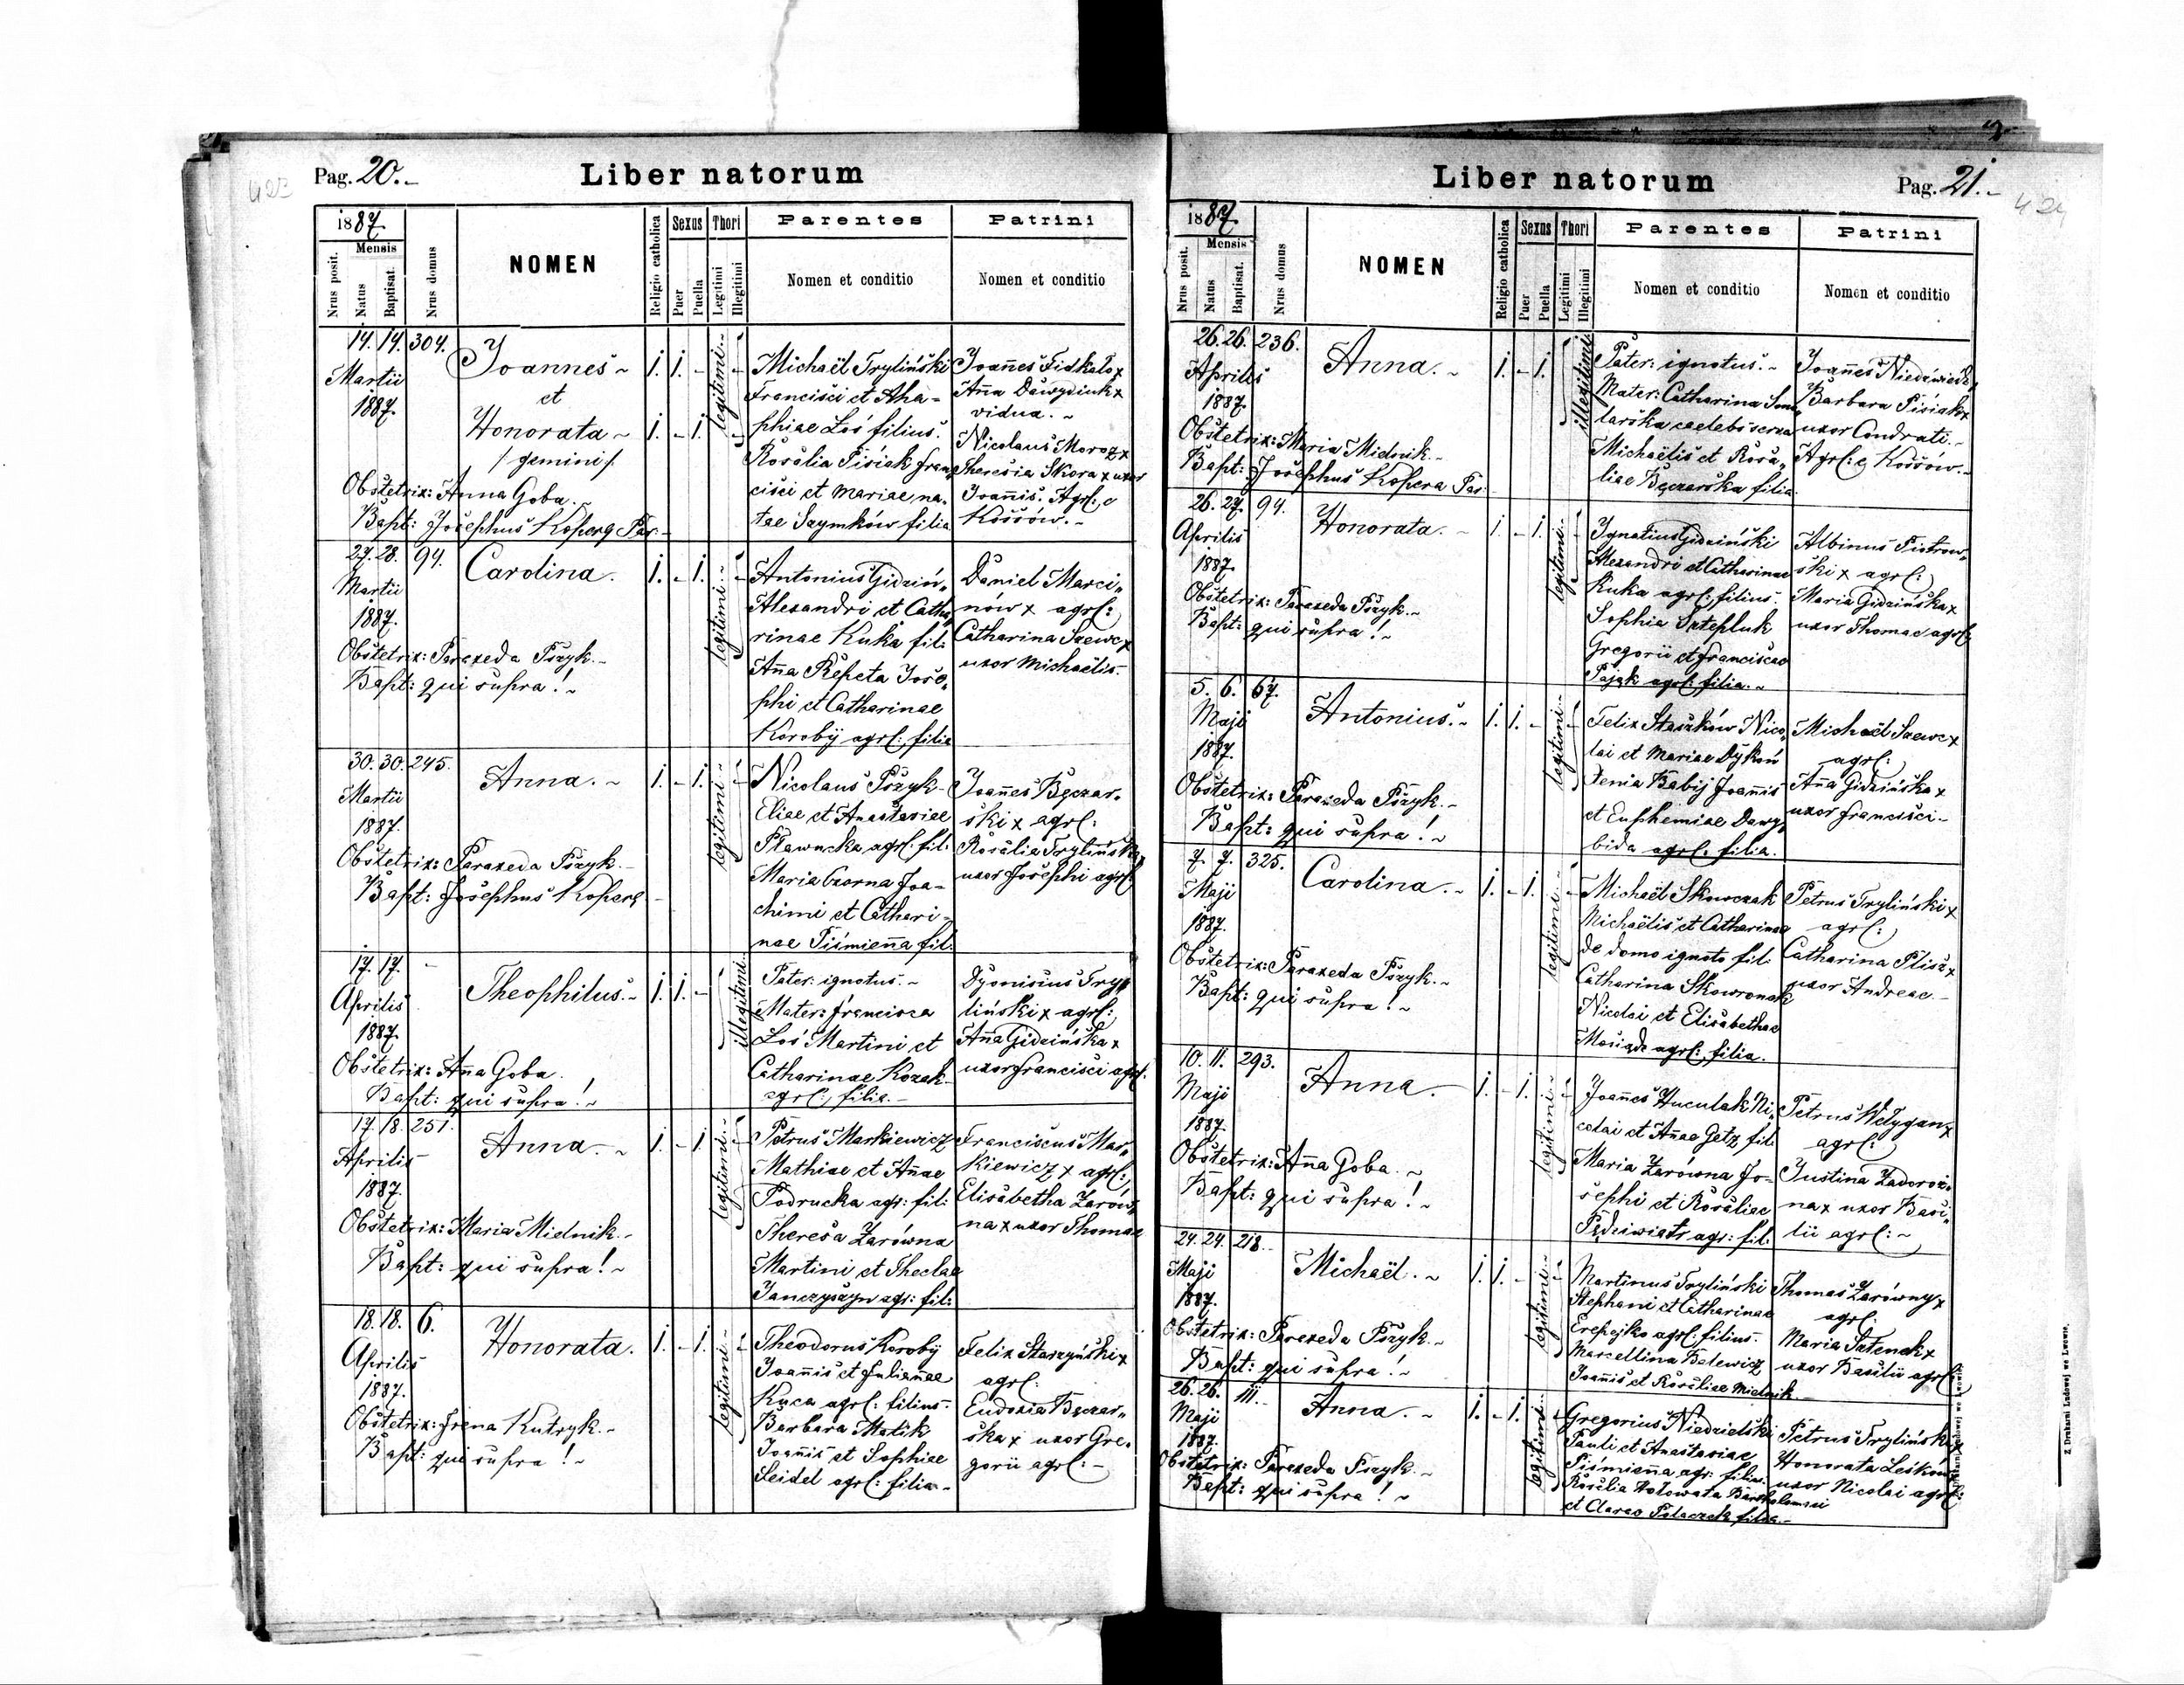 Pag. 20.
Liber natorum
1887
Nrus posit.
Mensis
Natus
Baptisat.
Nrus domus
NOMEN
Religio catholica
Sexus
Puer
Puella
Thori
Legitimi
Illegitimi
Parentes
Nomen et conditio
Patrini
Nomen et conditio
14. 14. 304.
Martii
1887.
Joannes
et
Honorata
/gemini/
1. 1. -
1. - 1.
legitimi
Obstetrix: Anna Goba.
Bapt: Josephus Kopera Par.
Michaël Tryliński
Francisci et Aha-
phiae Łoś filius.
Rosalia Pisiak Fran
cisci et Mariae na-
tae Szymków filia
Joannes Fidkało x
Anna Dawydiuk x
vidua.
Nicolaus Moroz x
Theresia Skora x uxor
Joannis. Agrl: e
Kossów.
27. 28. 94.
Martii
1887.
Carolina.
1. - 1.
legitimi
Obstetrix: Paraxeda Pszyk.
Bapt: qui supra!
Antonius Gidziń„
Alexandri et Catha„
rinae Kuka fil:
Anna Repeta Jose„
phi et Catharinae
Korobij agrl: filia
Daniel Marci„
nów x agrl:
Catharina Szewc x
uxor Michaëlis.
30. 30. 245.
Martii
1887.
Anna.
1. - 1.
legitimi
Obstetrix: Paraxeda Pszyk.
Bapt: Josephus Kopera
Nicolaus Pszyk
Eliae et Anastasiae
Pławucka agrl: fil:
Maria Czorna Joa-
chimi et Cathari-
nae Piśmienna fil:
Joannes Bęczar„
ski x agrl:
Rosalia Trylińska
uxor Josephi agrl:
17. 17. -
Aprilis
1887.
Theophilus.
1. 1. -
illegitimi
Obstetrix: Anna Goba.
Bapt: qui supra!
Pater: ignotus.
Mater: Francisca
Łoś Martini et
Catharinae Kozak
agrl: filia.
Dyonisius Try„
liński x agrl:
Anna Gidzińska x
uxor Francisci agrl.
17. 18. 251.
Aprilis
1887.
Anna.
1. - 1.
legitimi
Obstetrix: Maria Mielnik.
Bapt: qui supra!
Petrus Markiewicz
Mathiae et Annae
Podrucka agr: fil:
Theresa Zarówna
Martini et Theclae
Janczyszyn agr: fil:
Franciscus Mar„
kiewicz x agrl:
Elisabetha Zarów„
na x uxor Thomae
18. 18. 6.
Aprilis
1887.
Honorata.
1. - 1.
legitimi
Obstetrix: Irena Kutryk.
Bapt: qui supra!
Theodorus Korobij
Joannis et Julianae
Kuca agrl: filius.
Barbara Matik
Joannis et Sophiae
Seidel agrl: filia
Felix Starzyński x
agrl:
Eudoxia Bęczar„
ska x uxor Gre„
gorii agrl:
Liber natorum
Pag. 21.
1887
Nrus posit.
Mensis
Natus
Baptisat.
Nrus domus
NOMEN
Religio catholica
Sexus
Puer
Puella
Thori
Legitimi
Illegitimi
Parentes
Nomen et conditio
Patrini
Nomen et conditio
26. 26. 236.
Aprilis
1887.
Anna.
1. - 1.
illegitimi
Obstetrix: Maria Mielnik.
Bapt: Josephus Kopera Par.
Pater: ignotus.
Mater: Catharina
larska caelebs serva
Michaëlis et Rosa„
liae Bęczarska filia.
Joannes Niedźwiedz
Barbara Pisiak x
uxor Condrati.
Agrl: e Kossów.
26. 27. 94.
Aprilis
1887.
Honorata.
1. - 1.
legitimi
Obstetrix: Paraxeda Pszyk.
Bapt: qui supra!
Ignatius Gidziński
Alexandri et Catharinae
Kuka agrl: filius.
Sophia Sztepluk
Gregorii et Franciscae
Pająk agrl: filia.
Albinus Piotrow„
ski x agrl:
Maria Gidzińska x
uxor Thomae agrl:
5. 6. 67.
Maji
1887.
Antonius.
1. 1. -
legitimi
Obstetrix: Paraxeda Pszyk.
Bapt: qui supra!
Felix Staszków Nico„
lai et Mariae Dykoń
Xenia Babij Joannis
et Euphemiae Dawy„
bida agrl: filia.
Michaël Szewc x
agrl:
Anna Gidzińska x
uxor Francisci.
7. 7. 325.
Maji
1887.
Carolina.
1. - 1.
legitimi
Obstetrix: Paraxeda Pszyk.
Bapt: qui supra!
Michaël Skowczak
Michaëlis et Catharinae
de domo ignoto fil:
Catharina Skowronek
Nicolai et Elisabethae
agrl: filia.
Petrus Tryliński x
agrl:
Catharina Plisz x
uxor Andreae.
10. 11. 293.
Maji
1887.
Anna.
1. - 1.
legitimi
Obstetrix: Anna Goba.
Bapt: qui supra!
Joannes Huculak Ni„
colai et Annae Getz fil:
Maria Zarówna Jo-
sephi et Rosaliae
Pędziwiatr agr: fil:
Petrus Wełygan x
agrl:
Justina Zadoroż„
na x uxor Basi„
lii agrl:
24. 24. 218.
Maji
1887.
Michaël.
1. 1. -
legitimi
Obstetrix: Paraxeda Pszyk.
Bapt: qui supra!
Martinus Tryliński
Stephani et Catharinae
Erepajko agrl: filius.
Marcellina Belewicz
Joannis et Rosaliae Mielnik
Thomas Zarówny x
agrl.
Maria
uxor Basilii agrl:
26. 26. 111.
Maji
1887.
Anna.
1. - 1.
legitimi
Obstetrix: Paraxeda Pszyk.
Bapt: qui supra!
Gregorius Niedzielski
Pauli et Anastasiae
Piśmienna agr: filius.
Rosalia Hołowata Bartholomaei
et Clarae Polaczek filia.
Petrus Tryliński x
Honorata Leśków
uxor Nicolai agrl:
Z Drukarni Ludowej we Lwowie.